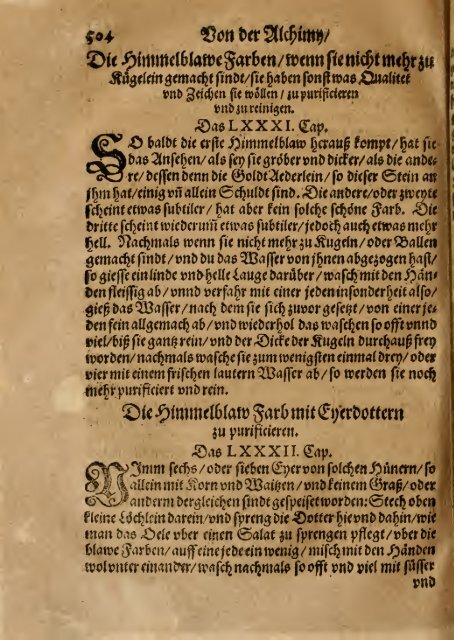 504 Von der Alchimy/
Die Himmelblawe Farben/wenn sie nicht mehr zu
Kügelein gemacht sindt/sie haben sonst was Qualitet
vnd Zeichen sie wöllen/zu purificieren
vnd zu reinigen.
Das LXXXI. Cap.
SO baldt die erste Himmelblaw herauß kompt/hat sie
das Ansehen/als sey sie gröber vnd dicker/als die ande-
re/dessen denn die Goldt Aederlein/so dieser Stein an
jhm hat/einig vñ allein Schuldt sind. Die andere/oder zweyte
scheint etwas subtiler/hat aber kein solche schöne Farb. Die
dritte scheint wiederum̃ etwas subtiler/jedoch auch etwas mehr
hell. Nachmals wenn sie nicht mehr zu Kugeln/oder Ballen
gemacht sindt/vnd du das Wasser von jhnen abgezogen hast/
so giesse ein linde vnd helle Lauge darüber/wasch mit den Hän-
den fleissig ab/vnnd verfahr mit einer jeden insonderheit also/
gieß das Wasser/nach dem sie sich zuvor gesetzt/von einer je-
den fein allgemach ab/vnd wiederhol das waschen so offt vnnd
viel/biß sie gantz rein/vnd der Dicke der Kugeln durchauß frey
worden/nachmals wasche sie zum wenigsten einmal drey/oder
vier mit einem frischen lautern Wasser ab/so werden sie noch
mehr purificiert vnd rein.
Die Himmelblaw Farb mit Eyerdottern
zu purificieren.
Das LXXXII. Cap.
NImm sechs/oder sieben Eyer von solchen Hünern/so
allein mit Korn vnd Waitzen/vnd keinem Graß/oder
anderm dergleichen sindt gespeiset worden: Stech oben
kleine Löchlein darein/vnd spreng die Dotter hie vnd dahin/wie
man das Oele vber einen Salat zu sprengen pflegt/vber die
blawe Farben/auff eine jede ein wenig/misch mit den Händen
wol vnter einander/wasch nachmals so offt vnd viel mit süsser
vnd